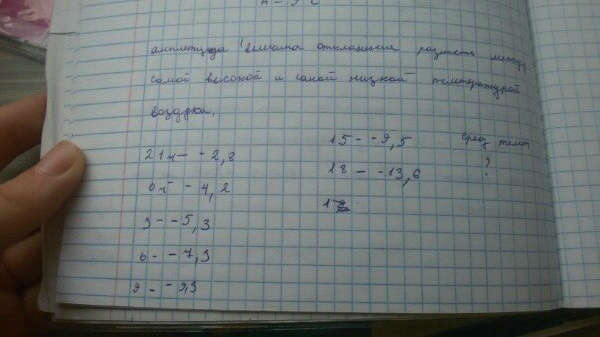 амплитуда величина отклонения разность между
самой высокой и самой низкой температурой
воздуха.
21ч – -2,8
0ч – -4,2
3 – -5,3
6 – -7,9
9 – -9,9
15 – -9,5 сред темп
18 – -13,6 ?